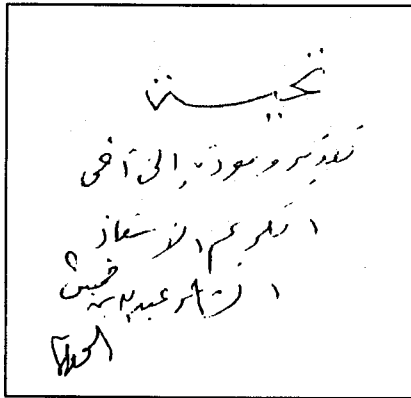 تحيــــة
تقدير ومودة إلى أخي
الكريم الأستاذ
الشاعر عبدالله بن خميس